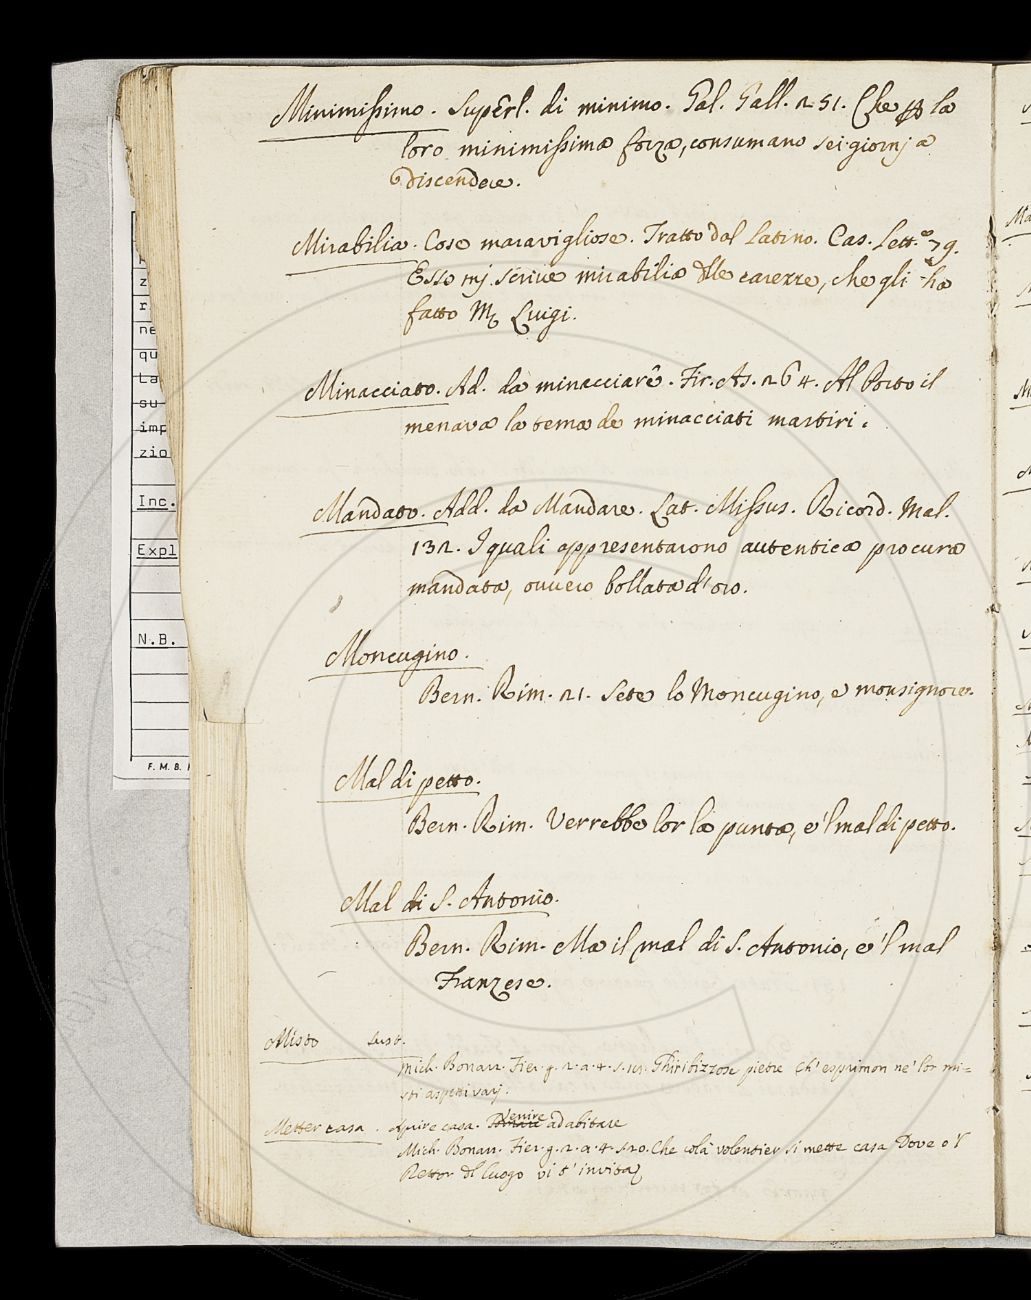 Minimissimo. Superl. di minimo. Gal. Gall. 251. Che la
loro minimissima forza, consumano sei giornj a
discendere.
Mirabilia. Cose maravigliose. Tratto dal latino. Cas. Lett. 79.
Esso mj scrive mirabilia delle carezze, che gli ha
fatto Mr. Luigi.
Minacciato. Ad. da minacciare. Fir. As. 264. Al Porto il
menava la tema de minacciati martiri.
Mandato. Add. da Mandare. Lat. Missus. Ricord. Mal.
132. I quali appresentarono autentica procura
mandata, ovvero bollata d'oro.
Moncugino.
Bern. Rim. 21. Sete lo Moncugino, e monsignore.
Mal di petto.
Bern. Rim. Verrebbe lor la punta, e'l mal di petto.
Mal di S. Antonio.
Bern. Rim. Ma il mal di S. Antonio, e'l mal
Franzese.
Misto Sust.
Mich. Bonarr. Fier. g. 2. a. 4. s. Ghiribizzose pietre ch'esprimon ne' lor mi=
sti aspetti varj.
Metter casa. aprire casa. venire ad abitare
Mich. Bonarr. Fier. g. 2. a. 4. s. 20. Che colà volentier si mette casa Dove o'l
Rettor del luogo vi t'invita
z
r
ne
qu
La
su
imp
zio
Inc.
Expl
N.B.
F. M. B.